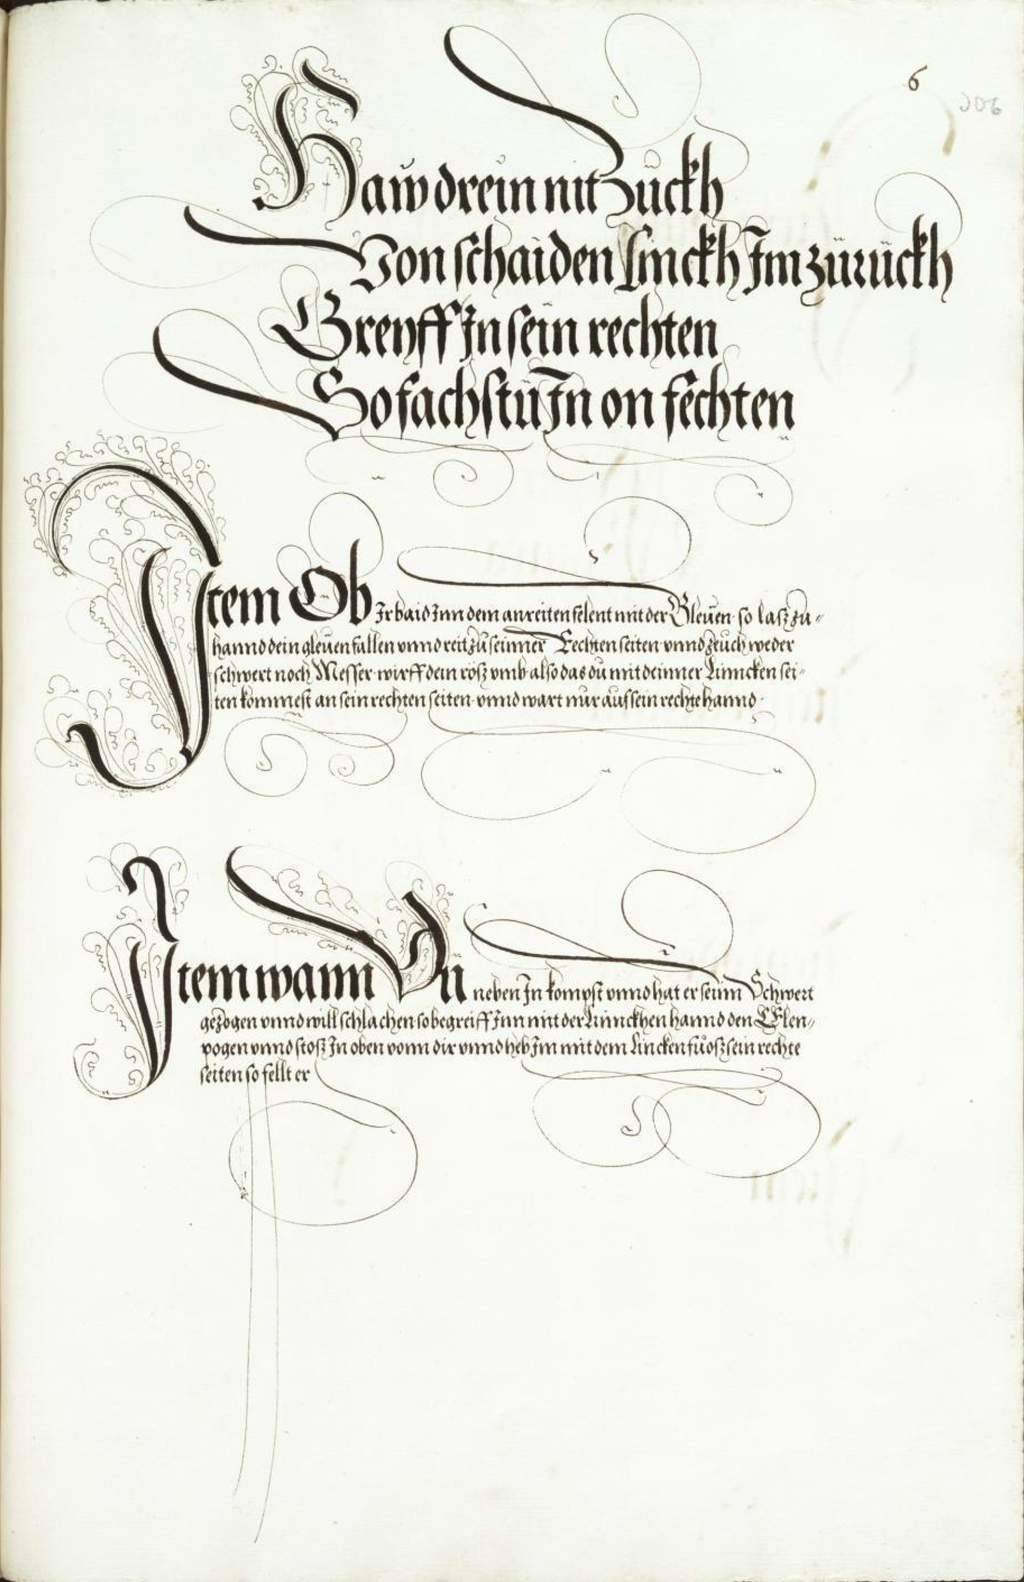 6
306
Haw drein nit Zuckh
Von schaiden Linckh Im zürückh
Greyff In sein rechten
So fachstu In on fechten
Item Ob Ir baid Inn dem anreiten felent mit der Gleuen · so lasz zu-
hannd dein gleuen fallen vnnd reit zu seinner Rechten seiten · vnnd zeuch weder
schwert noch Messer · wirff dein rösz vmb · also das du mit deinner Linncken sei-
ten kommest an sein rechten seiten · vnnd wart nur auf sein rechte hannd ·
Item wann Du neben In kompst vnnd hat er seinn Schwert
gezogen vnnd will schlachen so begreiff Inn mit der Linnckhen hannd den Elen-
pogen vnnd stosz In oben vonn dir vnnd heb Im mit dem Lincken fuosz sein rechte
seiten so fellt er